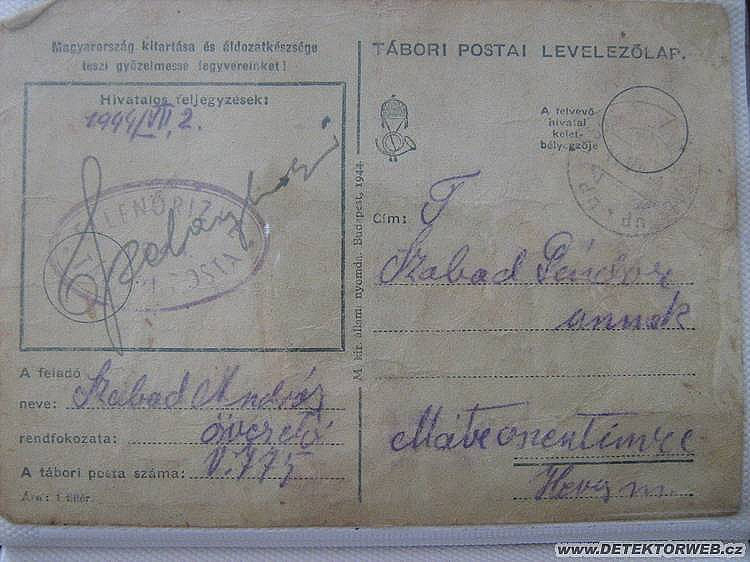 Magyarország kitartása és áldozatkészsége
teszi győzelmesse fegyvereinket!
Hivatalos feljegyzések:
1944/VII. 2.
TÁBORI POSTAI LEVELEZŐLAP.
A felvevő
hivatal
kelet-
bélyegzője
M. kir. állam. nyomda. Budapest, 1944.
Cím: T
Szabad Sándor
annak
Heves m.
A feladó
neve: Szabad András
rendfokozata:
A tábori posta száma: V.775
Ára: 1 fillér.
www.DETEKTORWEB.cz